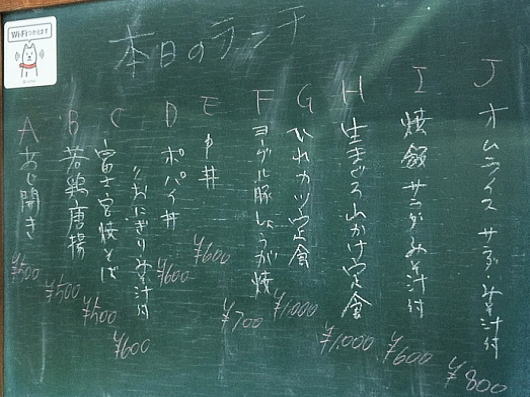 Wi-Fiつかえます
本日のランチ
A あじ開き ¥500
B 若鶏唐揚 ¥500
C 富士宮焼そば ¥500
〃おにぎりみそ汁付 ¥600
D ポパイ丼 ¥600
E 中丼 ¥600
F ヨーグル豚しょうが焼 ¥700
G ひれカツ定食 ¥1,000
H 生まぐろ山かけ定食 ¥1,000
I 焼飯 サラダ・みそ汁付 ¥600
J オムライス サラダ・みそ汁付 ¥800